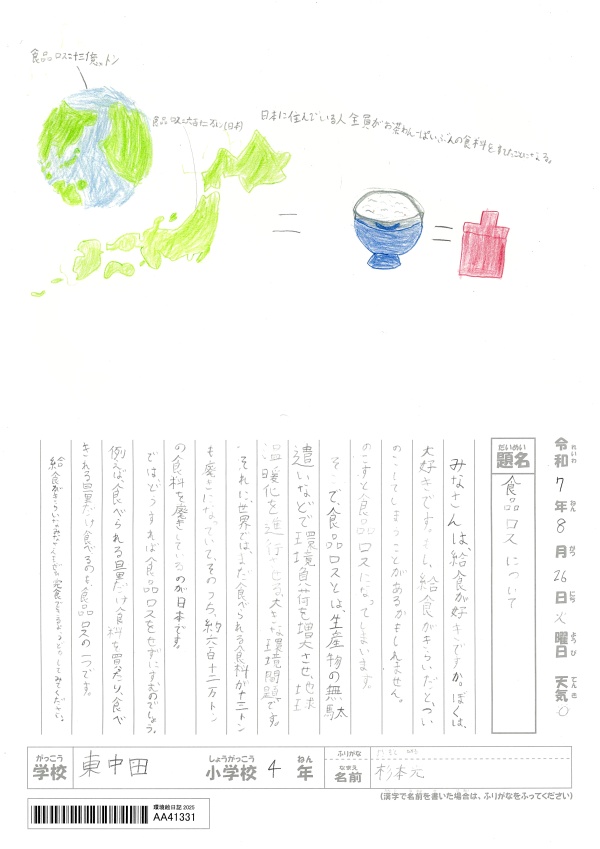 食品ロスは十三億トン
食品ロス六百十二万トン(日本)
日本に住んでいる人全員がお茶わんいっぱいぶんの食料をすてたことになる。
令和7年8月26日火曜日 天気○
題名 食品ロスについて
みなさんは、給食が好きですか。ぼくは、
大好きです。もし、給食がきらいだと、つい
のこしてしまうことがあるかもしれません。
のこすと食品ロスになってしまいます。
そこで、食品ロスとは、生産物の無駄
遣いなどで環境負荷を増大させ、地球
温暖化を進行させる、大きな環境問題です。
それに、世界では、まだ食べられる食料が十三トン
も廃きになっていて、そのうち、約六百十二万トン
の食料を廃きしているのが日本です。
では、どうすれば食品ロスをせずにすむのでしょう。
例えば、食べられる量だけ食料を買ったり、食べ
きれる量だけ食べるのも、食品ロスの一つです。
給食がきらいなみなさんもぜひ完食できるようにしてみてください。
学校 東中田 小学校 4年
ふりがな
名前 杉本元
(漢字で名前を書いた場合は、ふりがなをふってください)
環境絵日記 2025
AA41331